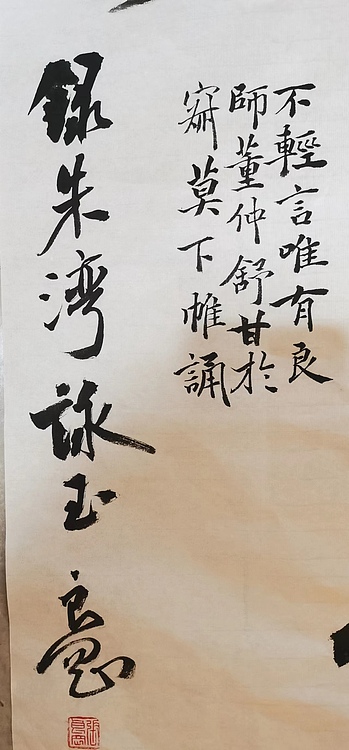 不輕言唯有良
師董仲舒甘於
寂莫下帷誦
録朱湾詠玉